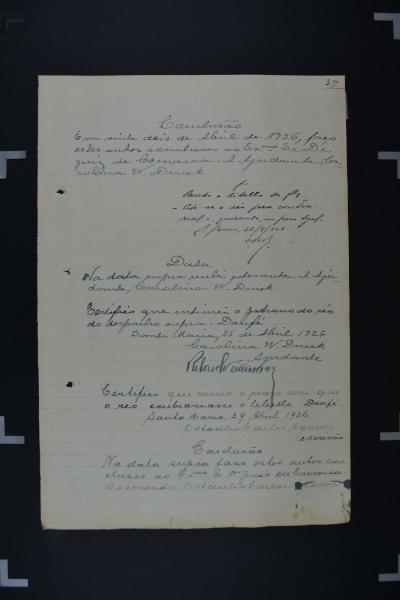 37
Conclusão
Em vinte dois de Abril de 1926, faço
estes autos conclusos ao Exmo Sr. Dr.
juiz de Comarca. A Ajudante, Ca
rolina W. Dunck
Recebo o libello de fls.
- Cite-se o réo para contra
22/4/926
Data
Na data supra recebi estes autos. A Aju
dante, Carolina W. Dunck
Certifico que intimei o patrono do réo
do despacho supra. Doufé
Santa Maria, 25 de Abril 1926
Carolina W. Dunck
Ajudante
Certifico que correu o prazo sem que
o réo contrariasse o libello. Doufé
Santa Maria, 29 Abril 1926
Octacilio Carlos
escrivão
Conclusão
Na data supra faço estes autos con
clusos ao Exmo Sr Dr Juiz de Comarca.
O escrivão, Octacilio Carlos